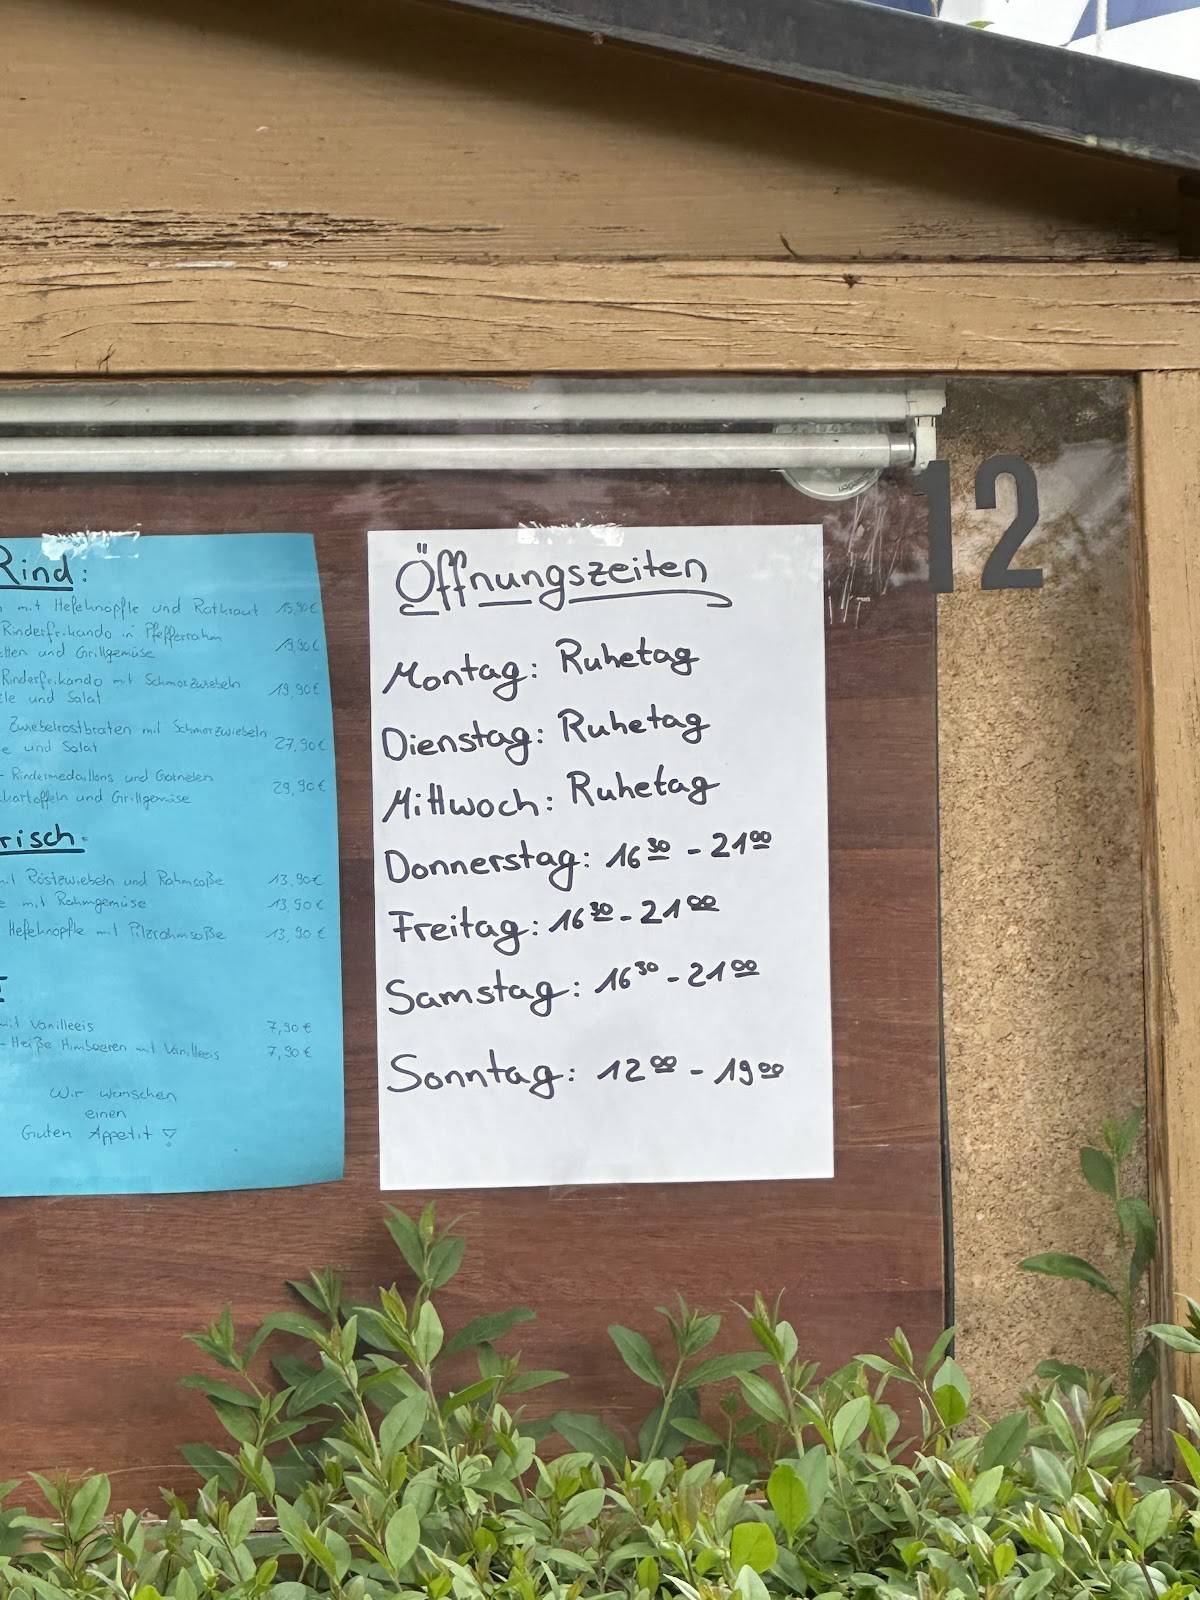 Rind:
mit Hefeknöpfle und Rotkraut 15,90€
Rinderfrikando in Pfefferrahm
und Grillgemüse 19,90€
Rinderfrikando mit Schmorzwiebeln
und Salat 19,90€
Zwiebelrostbraten mit Schmorzwiebeln
und Salat 27,90€
- Rindermedaillons und Garnelen
und Grillgemüse 29,90€
mit Röstzwiebeln und Rahmsoße 13,90€
mit Rahmgemüse 13,90€
Hefeknöpfle mit Pilzrahmsoße 13,90€
mit Vanilleeis 7,90€
- Heiße Himbeeren mit Vanilleeis 7,90€
Wir wünschen
einen
Guten Appetit
Öffnungszeiten
Montag: Ruhetag
Dienstag: Ruhetag
Mittwoch: Ruhetag
Donnerstag: 16³⁰ - 21⁰⁰
Freitag: 16³⁰ - 21⁰⁰
Samstag: 16³⁰ - 21⁰⁰
Sonntag: 12⁰⁰ - 19⁰⁰
12